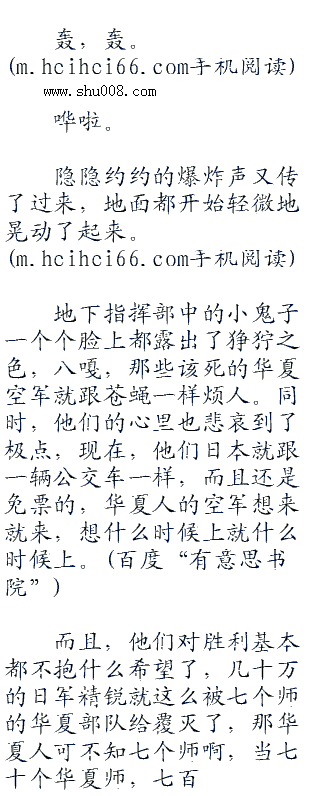 轰，轰。
(m.hcihci66.com手机阅读)
www.shu008.com
哗啦。
隐隐约约的爆炸声又传
了过来，地面都开始轻微地
晃动了起来。
(m.hcihci66.com手机阅读)
地下指挥部中的小鬼子
一个个脸上都露出了狰狞之
色，八嘎，那些该死的华夏
空军就跟苍蝇一样烦人。同
时，他们的心里也悲哀到了
极点，现在，他们日本就跟
一辆公交车一样，而且还是
免票的，华夏人的空军想来
就来，想什么时候上就什么
时候上。(百度“有意思书
院”)
而且，他们对胜利基本
都不抱什么希望了，几十万
的日军精锐就这么被七个师
的华夏部队给覆灭了，那华
夏人可不知七个师啊，当七
十个华夏师，七百